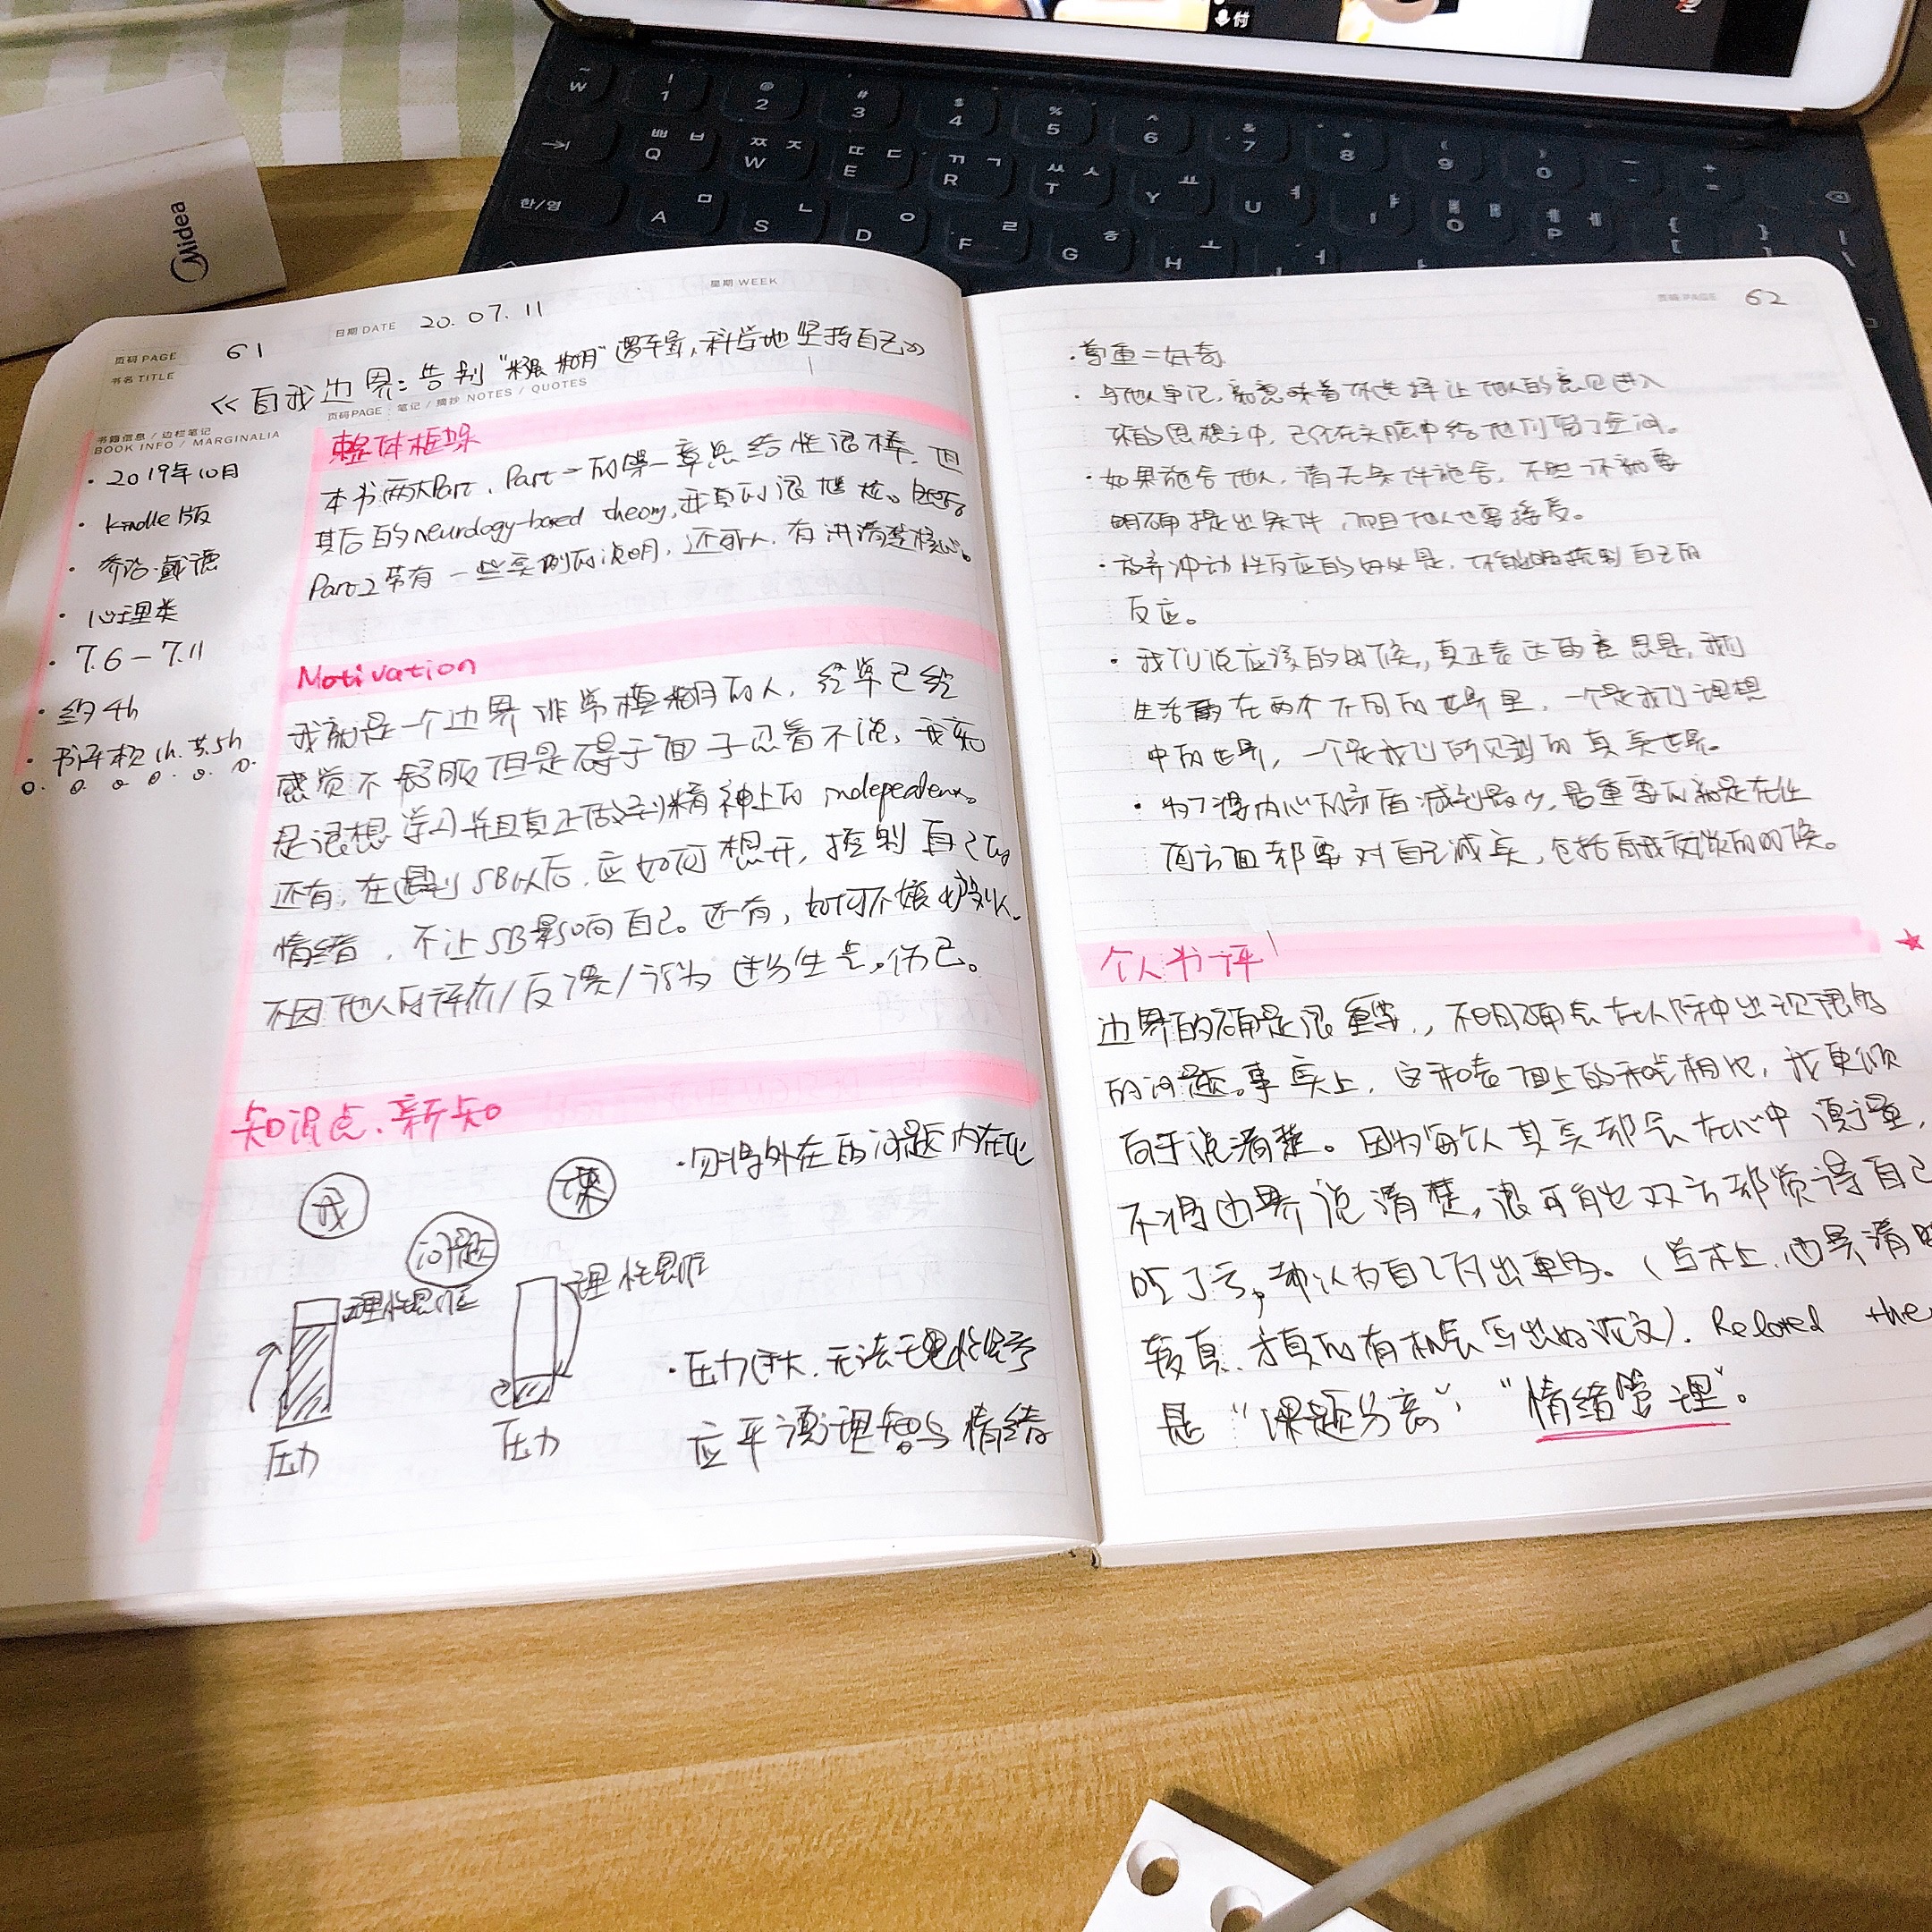 付
Midea
~ W ! 1 @ 2 # 3 $ 4 % 5 ^ 6 & 7 * 8 ( 9 ) 0
ㅃ ㅂ Q ㅉ ㅈ W ㄸ ㄷ E ㄲ ㄱ R ㅆ ㅅ T ㅛ Y ㅕ U ㅑ I ㅒ ㅐ O ㅖ ㅔ P { [ } ] | \
한/영 ㅁ A ㄴ S ㅇ D ㄹ F ㅎ G ㅗ H
页码 PAGE 61 日期 DATE 20.07.11 星期 WEEK
书名 TITLE
《自我边界:告别"模糊",科学地坚持自己》
页码PAGE 笔记 / 摘抄 NOTES / QUOTES
书籍信息 / 边栏笔记
BOOK INFO / MARGINALIA
· 2019年10月
· kindle版
· 乔治·戴德
· 心理类
· 7.6 - 7.11
· 约4h
· 书评 1h
整体框架
本书两大Part, Part一的第一章总结性很棒,但
其后的neurology-based theory,我真的很尴尬。
Part2带有一些实例的说明,还可以,有讲清楚核心。
Motivation
我就是一个边界非常模糊的人,经常已经
感觉不舒服但是碍于面子忍着不说,我就
是很想学习并且真正做到精神上的independent。
还有,在遇到SB以后,应如何想开,控制自己的
情绪,不让SB影响自己。还有,如何不
不因他人的评价/反馈/行为过分生气,伤己。
知识点、新知
我
问题
理性思维
理性思维
压力
压力
· 勿将外在的问题内在化
· 压力过大,无法理性思考
应平衡理智与情绪
页码 PAGE 62
· 尊重=好奇
· 与他人争论,就意味着你选择让他人的意见进入
你的思想之中,已经在头脑中给他们留了空间。
· 如果施舍他人,请无条件施舍,不然你就要
明确提出条件,而且他人也要接受。
· 放弃冲动性反应的好处是,你能控制自己的
反应。
· 我们说应该的时候,真正表达的意思是,我们
生活在两个不同的世界里,一个是我们理想
中的世界,一个是我们所见到的真实世界。
· 为了将内心的矛盾减到最少,最重要的就是在任
何方面都要对自己诚实,包括自我反省的时候。
个人书评
边界的确是很重要,不明确会在人际中出现很多
的问题。事实上,这和表面上的和气相比,我更倾
向于说清楚。因为每个人其实都会在心中衡量,
不将边界说清楚,很可能双方都觉得自己
吃了亏,都认为自己付出更多。(学术上,边界清晰
较真,才真的有机会写出好论文). Related the
是"课题分离","情绪管理"。